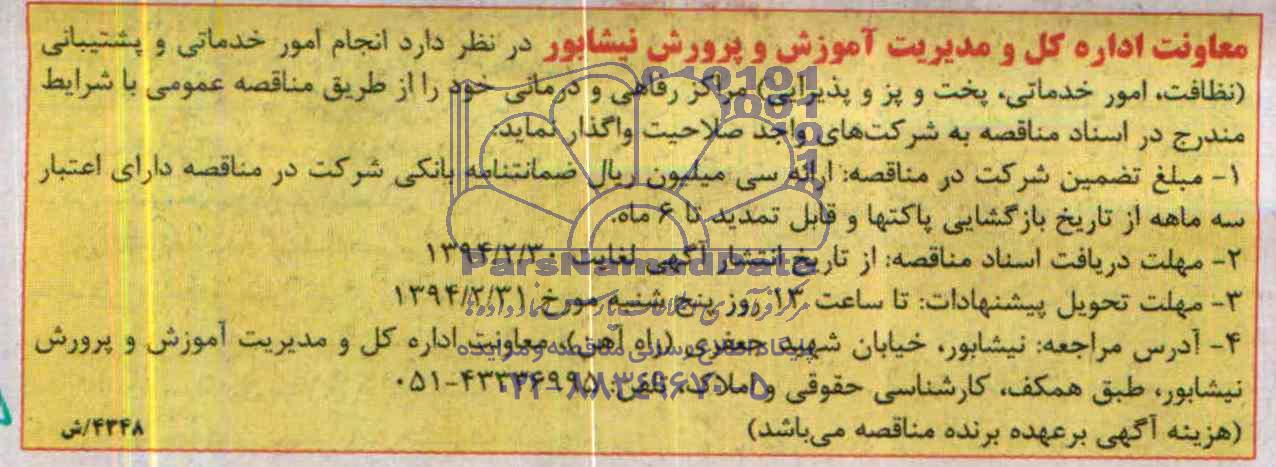 معاونت اداره کل و مدیریت آموزش و پرورش نیشابور در نظر دارد انجام امور خدماتی و پشتیبانی
(نظافت، امور خدماتی، پخت و پز و پذیرایی) مراکز رفاهی و درمانی خود را از طریق مناقصه عمومی با شرایط
مندرج در اسناد مناقصه به شرکت‌های واجد صلاحیت واگذار نماید:
۱- مبلغ تضمین شرکت در مناقصه: ارائه سی میلیون ریال ضمانتنامه بانکی شرکت در مناقصه دارای اعتبار
سه ماهه از تاریخ بازگشایی پاکتها و قابل تمدید تا ۶ ماه.
۲- مهلت دریافت اسناد مناقصه: از تاریخ انتشار آگهی لغایت ۱۳۹۴/۲/۳۰
ParsNamadData
۳- مهلت تحویل پیشنهادات: تا ساعت ۱۳ روز پنج شنبه مورخ ۱۳۹۴/۲/۳۱
۴- آدرس مراجعه: نیشابور، خیابان شهید جعفری (راه آهن)، معاونت اداره کل و مدیریت آموزش و پرورش
پایگاه اطلاع رسانی مناقصه و مزایده
نیشابور، طبق همکف، کارشناسی حقوقی و املاک، تلفن: ۴۳۳۳۶۹۹۵-۰۵۱
۰۲۱-۸۸۳۴۹۶۷۰-۵
(هزینه آگهی برعهده برنده مناقصه می‌باشد)
۴۳۴۸/ش